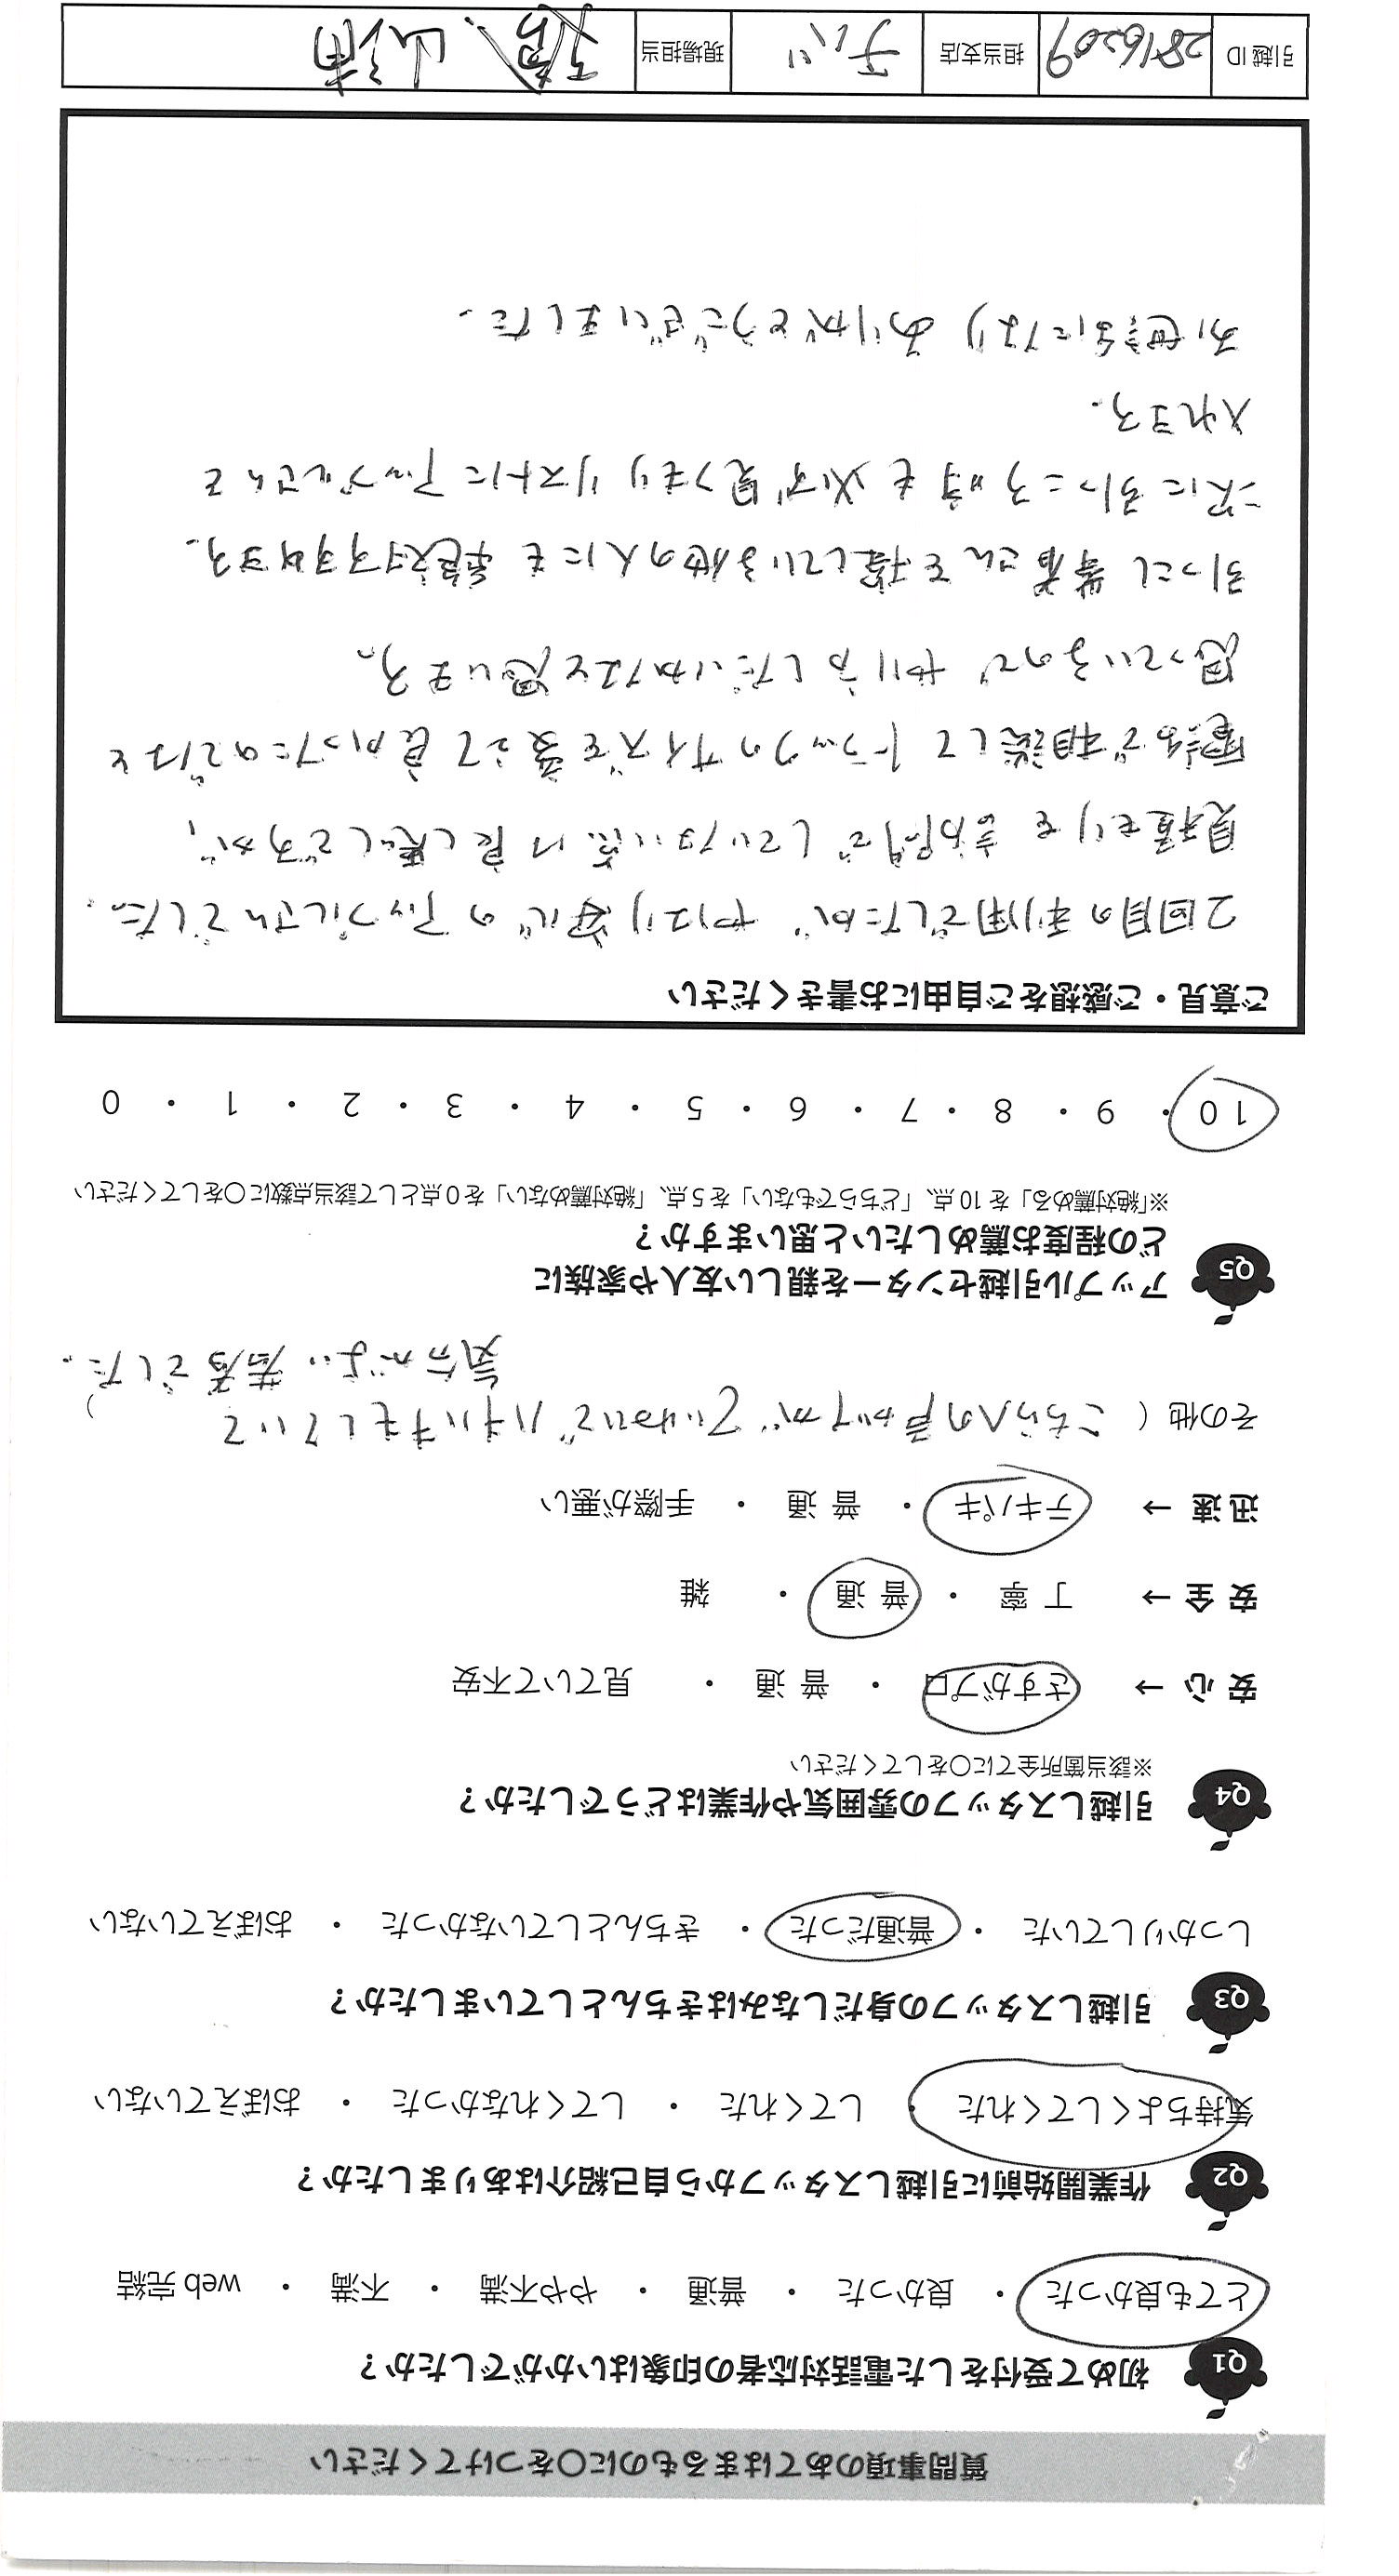 質問事項のあてはまるものに○をつけてください
Q1 初めて受付をした電話対応者の印象はいかがでしたか？
とても良かった ・ 良かった ・ 普通 ・ やや不満 ・ 不満 ・ web 完結
Q2 作業開始前に引越しスタッフから自己紹介はありましたか？
気持ちよくしてくれた ・ してくれた ・ してくれなかった ・ おぼえていない
Q3 引越しスタッフの身だしなみはきちんとしていましたか？
しっかりしていた ・ 普通だった ・ きちんとしていなかった ・ おぼえていない
Q4 引越しスタッフの雰囲気や作業はどうでしたか？
※該当箇所全てに○をしてください
安 心 → さすがプロ ・ 普 通 ・ 見ていて不安
安 全 → 丁 寧 ・ 普 通 ・ 雑
迅 速 → テキパキ ・ 普 通 ・ 手際が悪い
その他（ こちらへの声がけが ていねいで ハキハキもしていて
気分がよい 若者でした。 ）
Q5 アップル引越センターを親しい友人や家族に
どの程度お薦めしたいと思いますか？
※「絶対薦める」を 10 点、「どちらでもない」を 5 点、「絶対薦めない」を 0 点として該当点数に○をしてください
10 ・ 9 ・ 8 ・ 7 ・ 6 ・ 5 ・ 4 ・ 3 ・ 2 ・ 1 ・ 0
ご意見・ご感想をご自由にお書きください
2回目の利用でしたが、やはり安心のアップルさんでした。
見積もりを訪問でしていない点は良し悪しですが、
電話で相談して トラックのサイズを変えて良かったのではと
思っているので やり方しだいかなと思います。
引っこし業者さんを探している他の人にも 絶対ススめます。
次に引っこす時も必ず見つもりリストにアップルさんを
入れます。
お世話になり ありがとうございました。
引越 ID 2816209 担当支店 チバ 現場担当 山崎